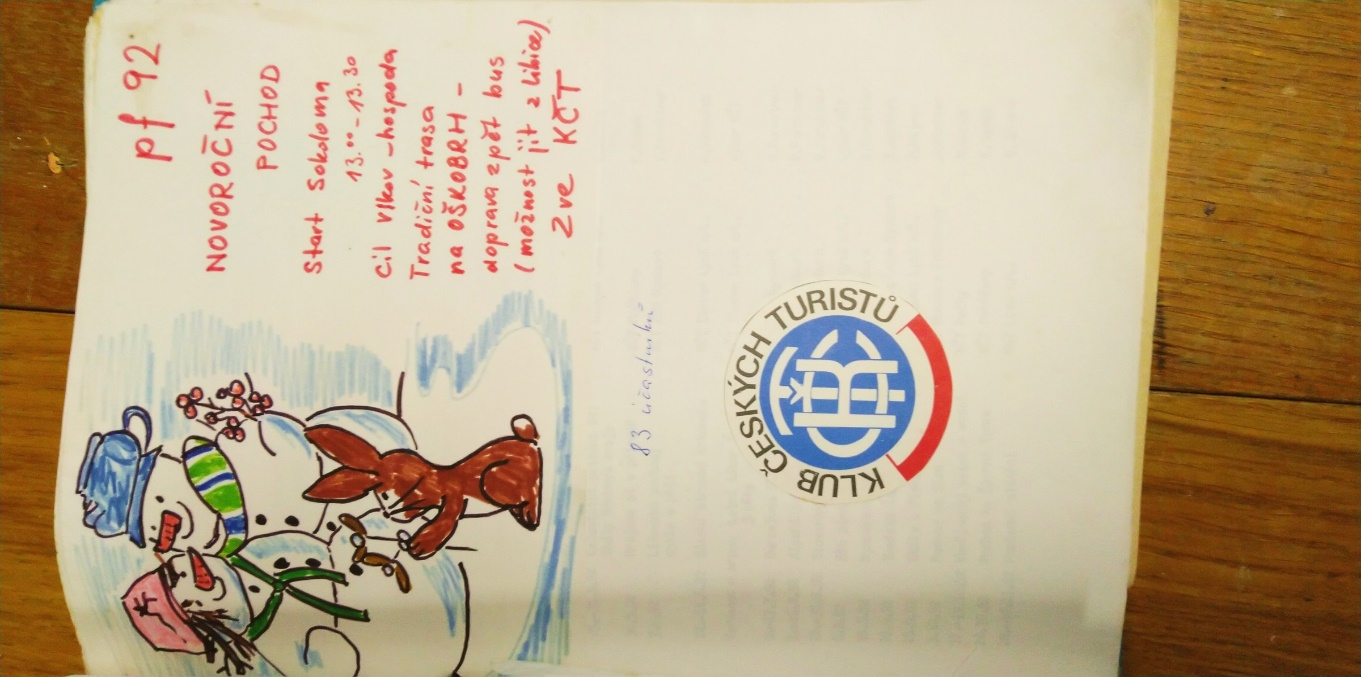 pf 92
NOVOROČNÍ
POCHOD
Start Sokolovna
13.00 - 13.30
Cíl Vlkov - hospoda
Tradiční trasa
na OŠKOBRH -
doprava zpět bus
(možnost jít z Libice)
Zve KČT
83 účastníků
KLUB ČESKÝCH TURISTŮ
KČT